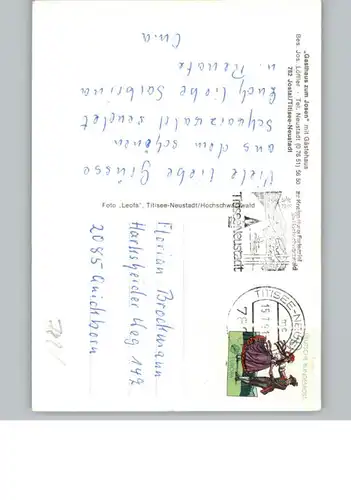 „Gasthaus zum Josen" mit Gästehaus
Bes. Jos. Löffler · Tel. Neustadt (0 76 51) 56 50
782 Jostal/Titisee-Neustadt
Viele liebe Grüsse
aus dem schönen
Schwarzwald sendet
Euch liebe Sabrina
u. Renate
Foto „Leofa", Titisee-Neustadt/Hochschwarzwald
Titisee-Neustadt
TITISEE-NEUSTADT
15.7.
Florian Brockmann
Harksheider Weg 142
2085 Quickborn